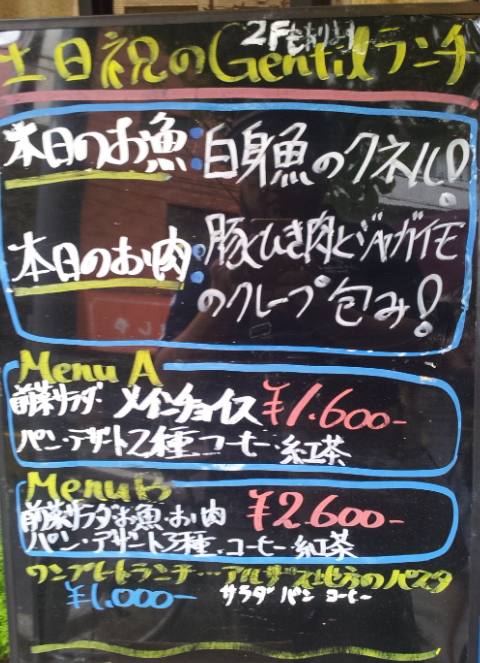 2Fもあります
土日祝のGentilランチ
本日のお魚:白身魚のクネル!
本日のお肉:豚ひき肉とジャガイモ
のクレープ包み!
Menu A
前菜サラダ メインチョイス ¥1.600-
パン・デザート2種 コーヒー・紅茶
Menu B
前菜サラダ お魚・お肉 ¥2600-
パン・デザート3種.コーヒー・紅茶
ワンプレートランチ…アルザス地方のパスタ
¥1.000- サラダ パン コーヒー